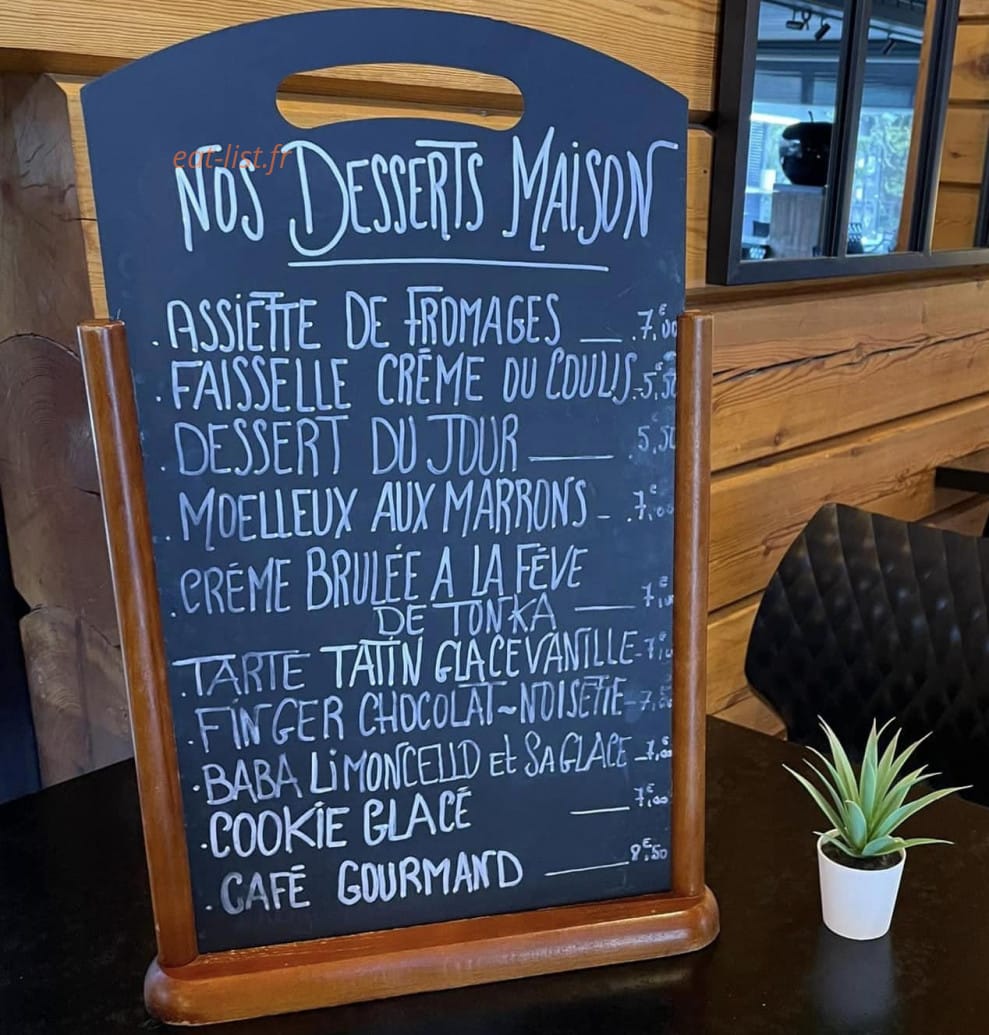 eat-list.fr
NOS DESSERTS MAISON
. ASSIETTE DE FROMAGES __ . 7,€00
. FAISSELLE CRÈME OU COULIS - 5,50
. DESSERT DU JOUR __ 5,€50
. MOELLEUX AUX MARRONS - . 7,€00
. CRÈME BRULÉE A LA FÈVE
DE TONKA __ 7,€00
. TARTE TATIN GLACE VANILLE -
. FINGER CHOCOLAT~NOISETTE -
. BABA LiMONCELLO et SA GLACE - 7,€00
. COOKiE GLACÉ __ 7,€00
. CAFÉ GOURMAND __ 8,€50